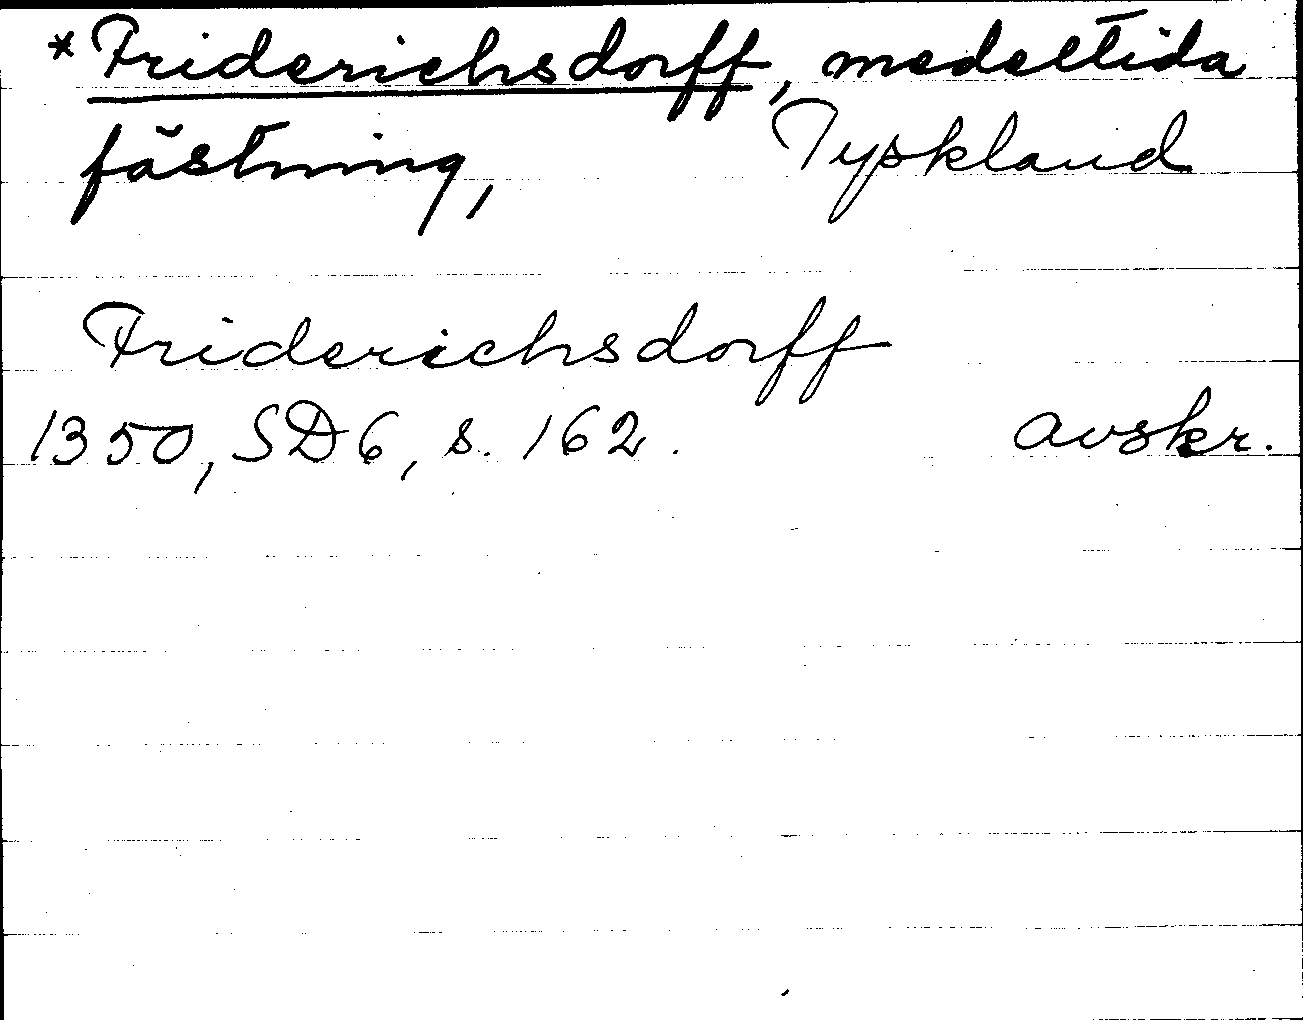 *Friderichsdorff, medeltida
fästning, Tyskland
Friderichsdorff
1350, SD6, s. 162. avskr.